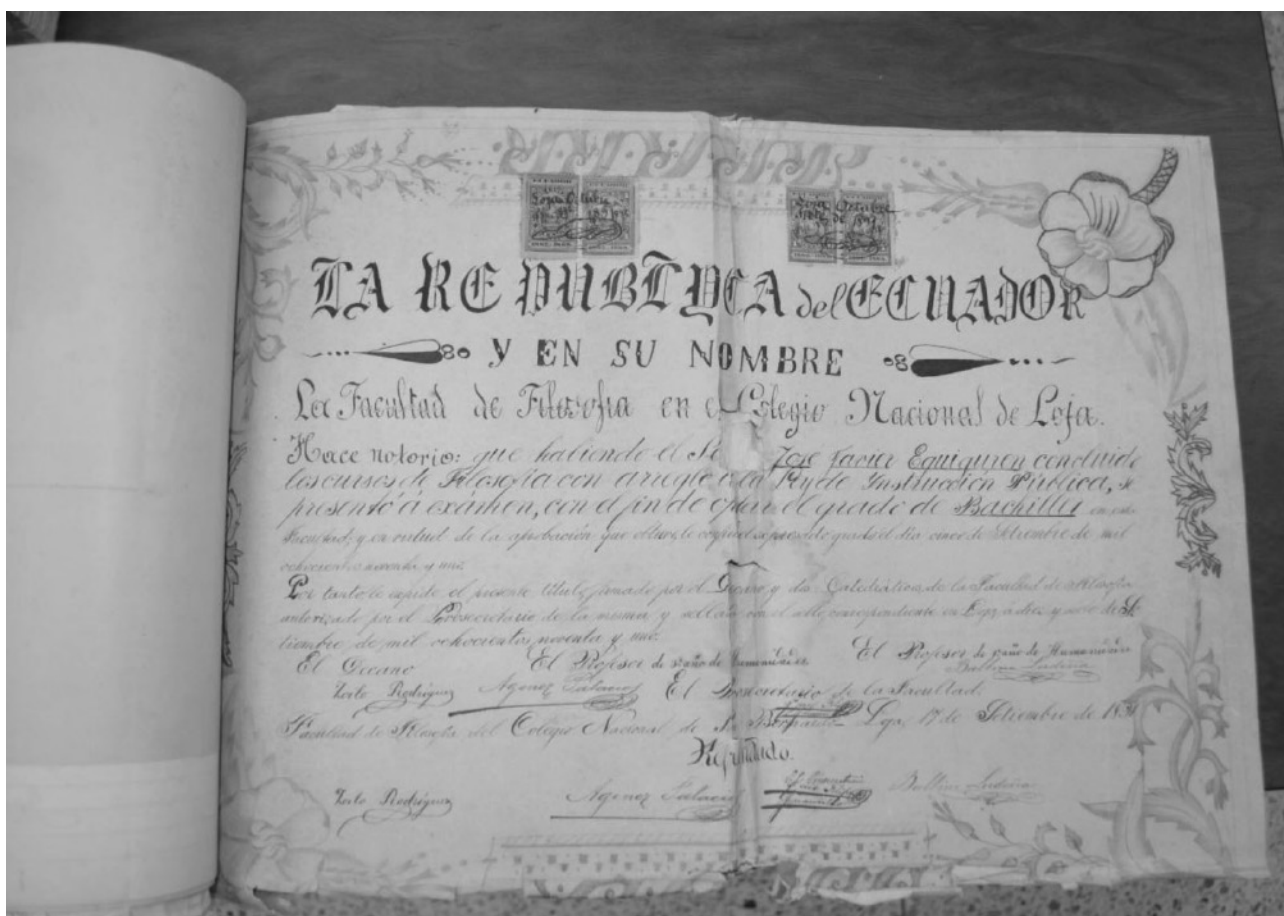 Loja, Octubre
Loja, Octubre
de 1891
LA REPUBLYCA del ECUADOR
Y EN SU NOMBRE
La Facultad de Filosofia en el Colegio Nacional de Loja.
Hace notorio: que habiendo el Sr José Javier Eguiguren concluido
los cursos de Filosofia con arreglo a la Ley de Instrucción Pública, se
presentó á exámen, con el fin de optar el grado de Bachiller en esta
Facultad; y en virtud de la aprobación que obtuvo, le confirió el expresado grado el dia cinco de Setiembre de mil
ochocientos noventa y uno.
Por tanto le expide el presente título, firmado por el Decano y dos Catedráticos de la Facultad de Filosofia
autorizado por el Prosecretario de la misma y sellado con el sello correspondiente en Loja, á diez y siete de Se
tiembre de mil ochocientos noventa y uno.
El Decano El Profesor de 2º año de Humanidades El Profesor de 1º año de Humanidades
Zoilo Rodríguez Agenor Palacio El Prosecretario de la Facultad.
Facultad de Filosofia del Colegio Nacional de Sn Bernardo. Loja, 17 de Setiembre de 1891
Refrendado.
Zoilo Rodríguez Agenor Palacio